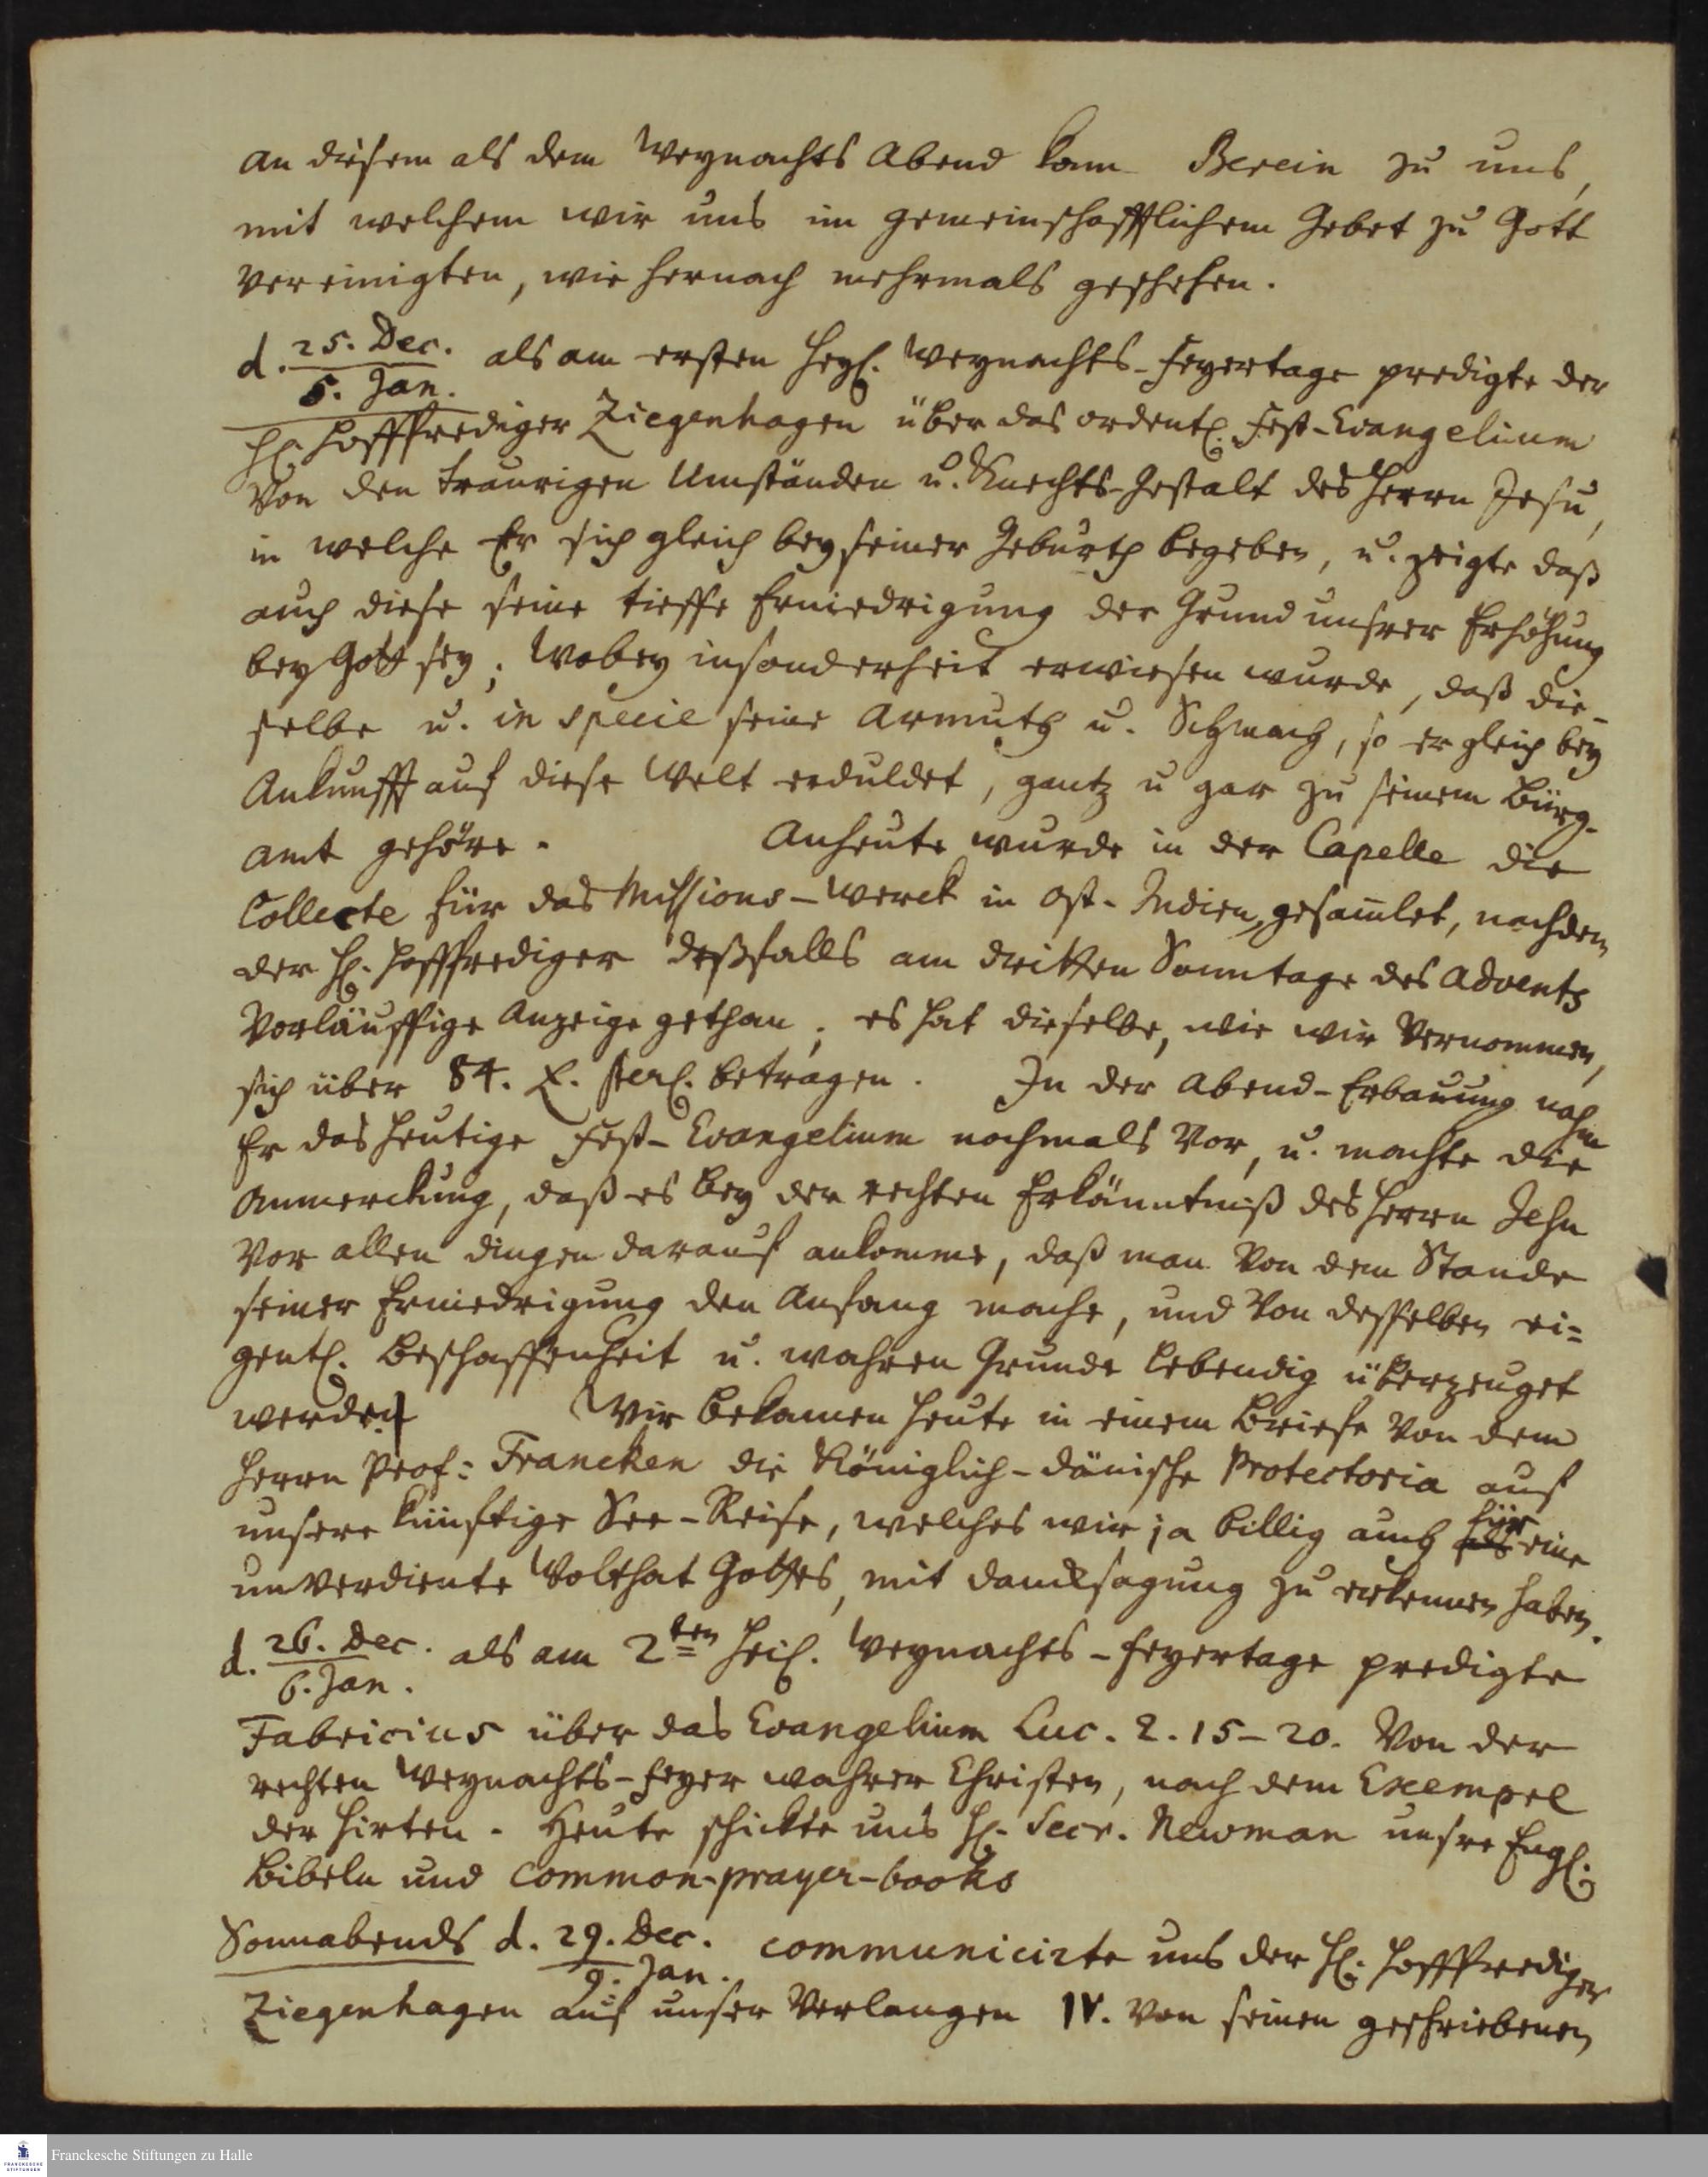 an diesem als dem Weynachts Abend kam Berein zu uns,
mit welchem wir uns im gemeinschafftlichem Gebet zu Gott
vereinigten, wie hernach mehrmals geschehen.
d. 25. Dec. / 5. Jan. als am ersten heyl. Weynachts-Feyertage predigte der
H. Hoffprediger Ziegenhagen über das ordentl. Fest-Evangelium
von den traurigen Umständen u. Knechts-Gestalt des Herrn Jesu,
in welche Er sich gleich bey seiner Geburth begeben, u. zeigte daß
auch diese seine tieffe Erniedrigung der Grund unsrer Erhöhung
bey Gott sey; Wobey insonderheit erwiesen wurde, daß die-
selbe u. in specie seine Armuth u. Schmach, so er gleich bey
Ankunfft auf diese Welt erduldet, gantz u gar zu seinem Bürg-
amt gehöre. Anheute wurde in der Capelle die
Collecte für das Missions-Werck in Ost-Indien, gesamlet, nachdem
der H. Hoffprediger deßfalls am dritten Sonntage des Advents
vorläuffige Anzeige gethan; es hat dieselbe, wie wir vernommen,
sich über 84. £. sterl. betragen. In der Abend-Erbauung nahm
Er das heutige Fest-Evangelium nochmals vor, u. machte die
Anmerckung, daß es bey der rechten Erkänntniß des Herrn Jesu
vor allen dingen darauf ankomme, daß man von dem Stande
seiner Erniedrigung den Anfang mache, und von desselben ei=
gentl. Beschaffenheit u. wahren Grunde lebendig überzeuget
werde. Wir bekamen heute in einem Briefe von dem
Herrn Prof: Francken die Königlich-dänische Protectoria auf
unsere künftige See-Reise, welches wir ja billig auch für eine
unverdiente Wolthat Gottes, mit dancksagung zu erkennen haben.
d. 26. Dec. / 6. Jan. als am 2ten heil. Weynachts-Feyertage predigte
Fabricius über das Evangelium Luc. 2. 15-20. Von der
rechten Weynachts-Feyer wahrer Christen, nach dem Exempel
der Hirten. Heute schickte uns H. Secr. Newman unsre Engl.
Bibeln und common-prayer-books
Sonnabends d. 29. Dec. / 9. Jan. communicirte uns der H. Hoffprediger
Ziegenhagen auf unser Verlangen IV. von seinen geschriebenen
Franckesche Stiftungen zu Halle